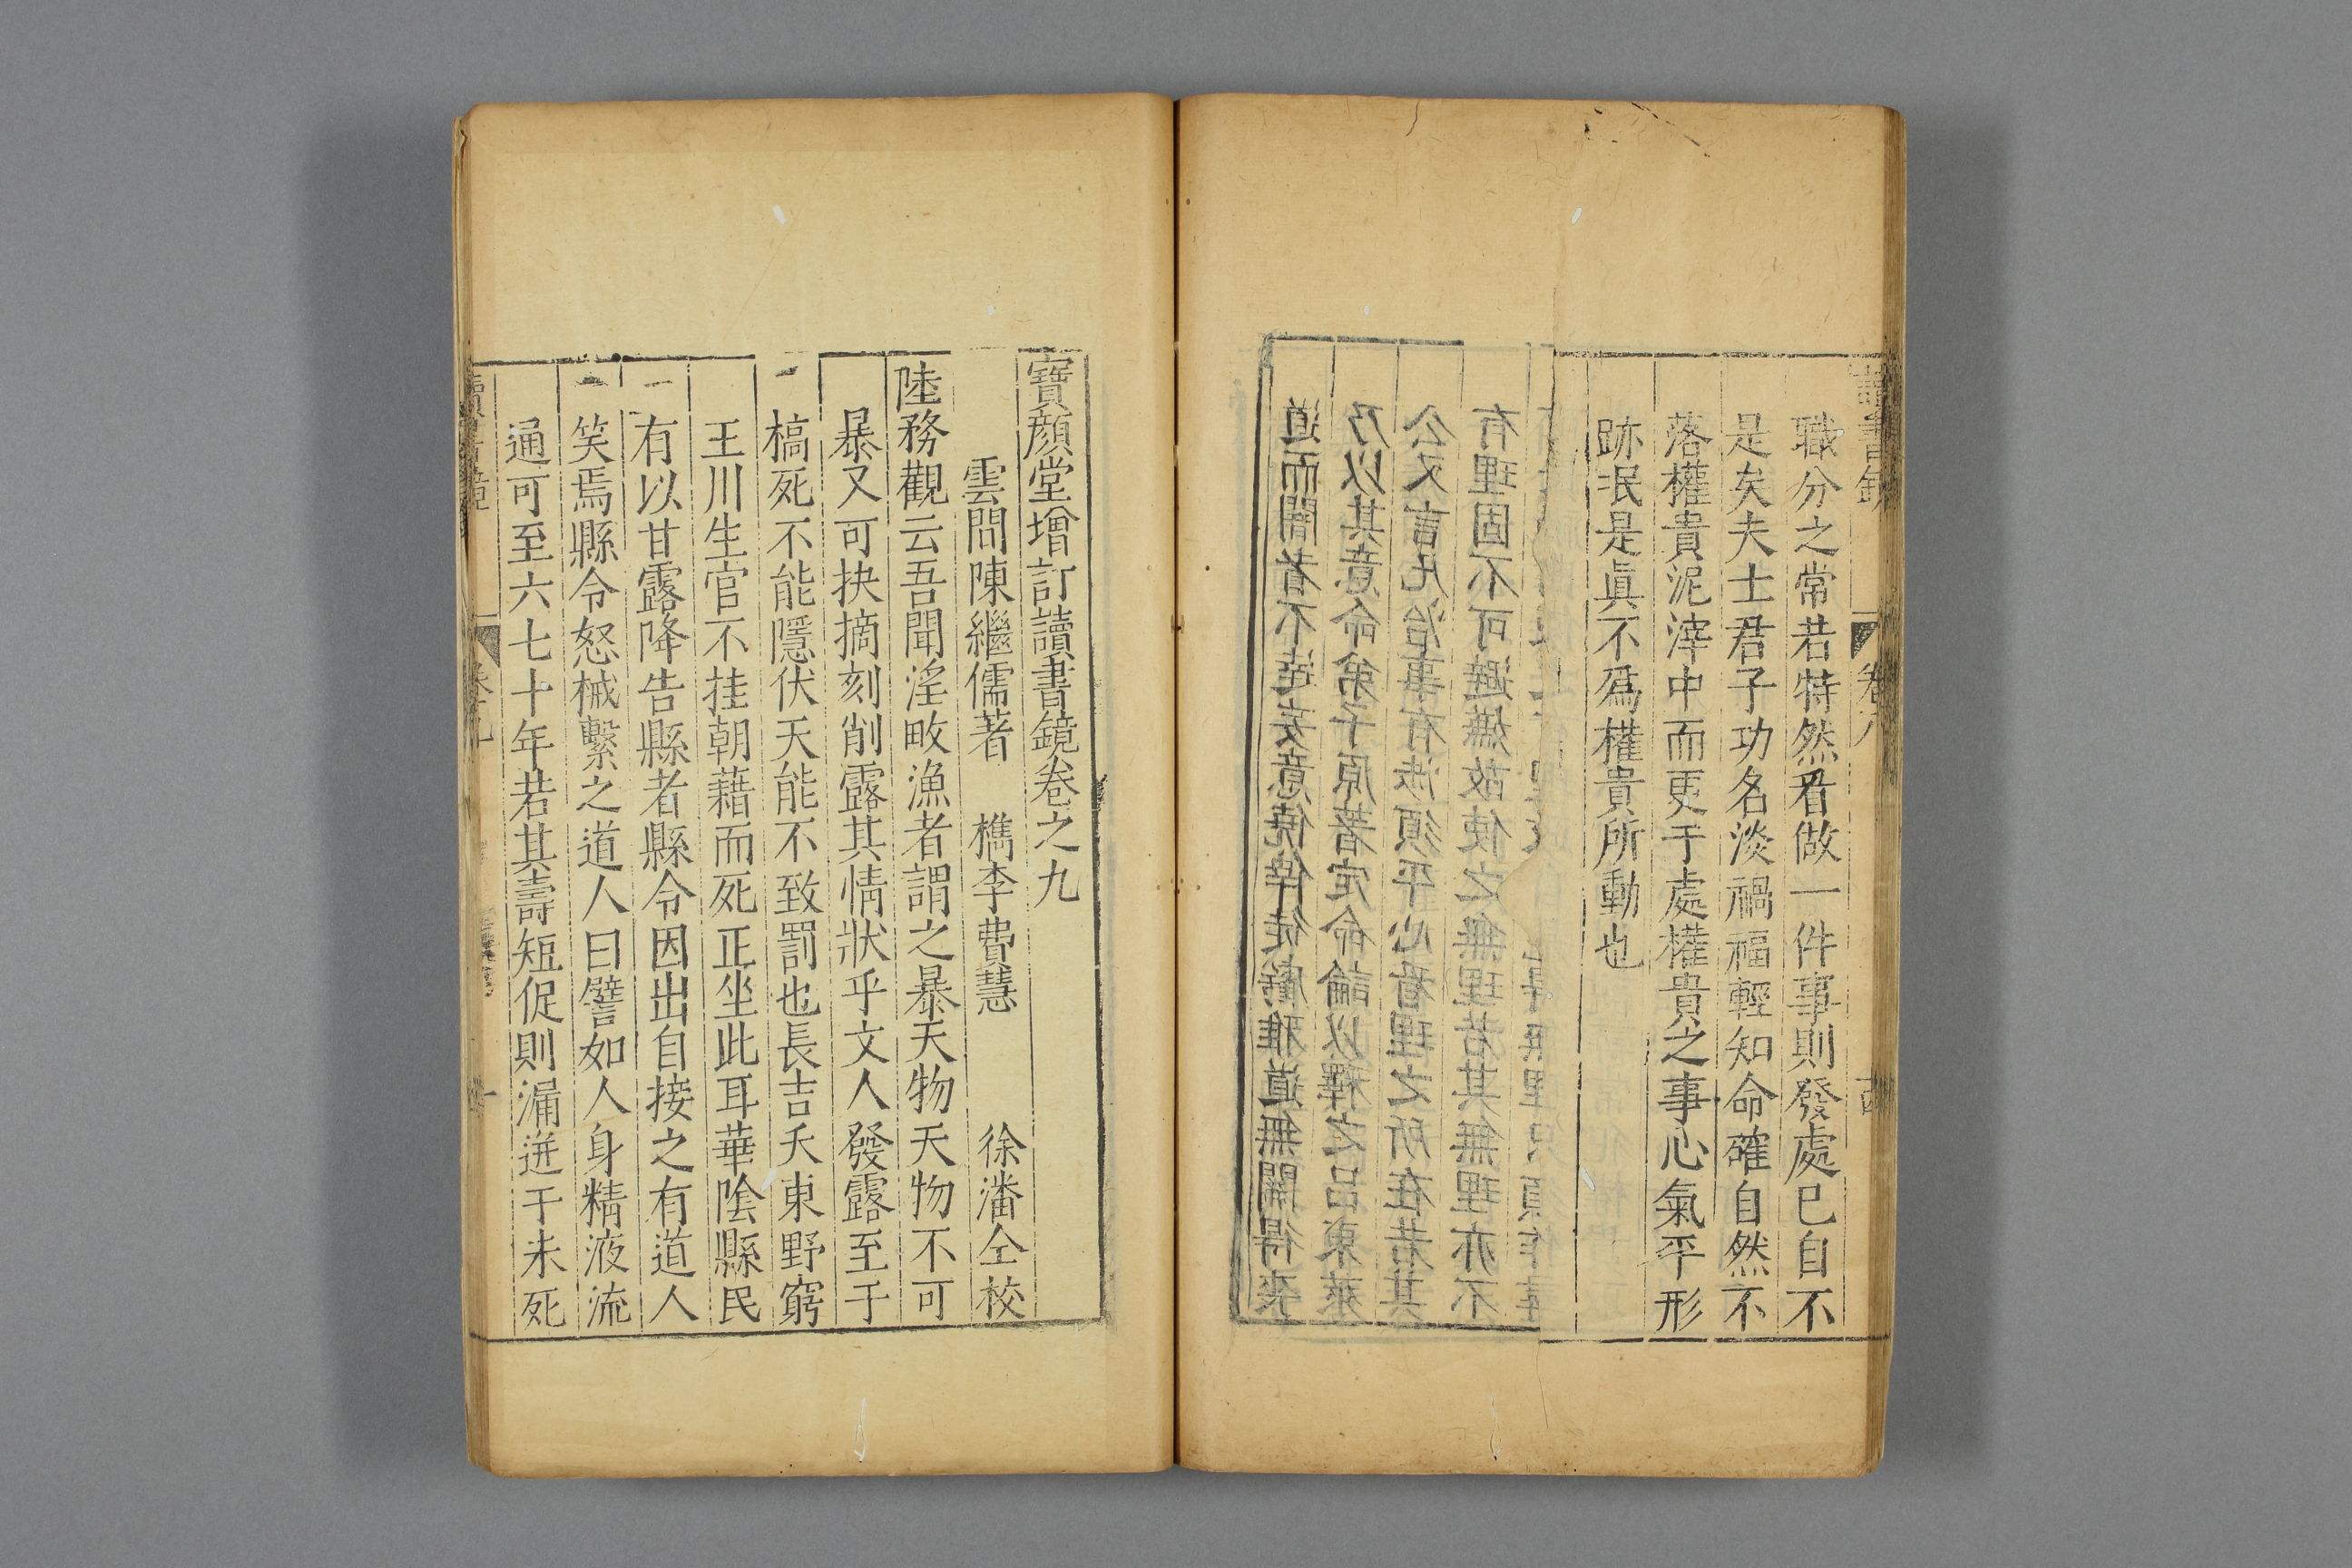 職分之常若特然看做一件事則發處已自不
是矣夫士君子功名淡禍福輕知命確自然不
落權貴泥滓中而更于處權貴之事心氣平形
跡泯是眞不爲權貴所動也
有理固不可避嫌故使之無理若其無理亦不
公又言凡治事有涉須平心看理之所在若其
乃以其意命弟子原著定命論以釋之呂東萊
寶顔堂增訂讀書鏡卷之九
雲間陳繼儒著 檇李費慧 徐潘仝校
陸務觀云吾聞淫畋漁者謂之暴天物天物不可
暴又可抉摘刻削露其情狀乎文人發露至于
槁死不能隱伏天能不致罰也長吉夭東野窮
玉川生官不挂朝藉而死正坐此耳華陰縣民
有以甘露降告縣者縣令因出自接之有道人
笑焉縣令怒械繫之道人曰譬如人身精液流
通可至六七十年若其壽短促則漏迸于未死
讀書鏡 卷九 一